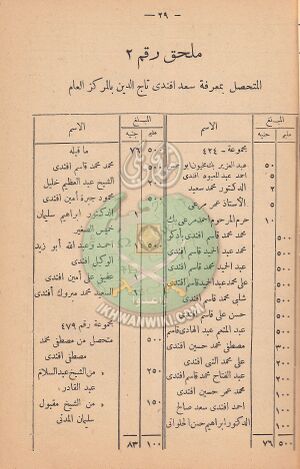 — ٢٩ —
ملحق رقم ٢
المتحصل بمعرفة سعد افندى تاج الدين بالمركز العام
المبلغ
الاسم
مليم
جنيه
مجموعة - ٤٢٤
٥٠
٥٠ احمد عبد المعبود افندى
٥٠ الدكتور محمد سعيد
٥٠ الأستاذ عمر مرعى
١٠ حرم المرحوم احمد مرعى بك
٥٠٠ محمد قاسم افندى بادكو
٥٠٠ عبد الحميد محمد قاسم افندى
٥٠٠ على محمد قاسم افندى
٥٠٠ عبد الحميد قاسم افندى
٥٠٠ شلبى محمد قاسم افندى
٥٠٠ حسن على قاسم افندى
٥٠٠ عبد المنعم عبد الهادى قاسم
٣٠٠ مصطفى محمد حسين افندى
٢٠٠ على محمد النبى افندى
٢٠٠ عبد الفتاح محمد قاسم افندى
محمد عمر حسين افندى
احمد افندى سعد صالح
الدكتور ابراهيم حسن الحلوانى
٥٠٠ ٧٦
المبلغ
الاسم
مليم
جنيه
٥٠٠ ٧٦ ما قبله
محمد محمد قاسم افندى
الشيخ عبد العظيم خليل
محمود جبرة أمين افندى
١ الدكتور ابراهيم سليمان
خميس الصغير
٥٠٠ ١ احمد وعبد الله أبو زيد
الوكيل افندى
عفيفى على أمين افندى
السعيد محمد مبروك أفندى
مجموعة رقم ٤٧٩
٥٠٠ متحصل من مصطفى محمد
مصطفى افندى
٢٥٠ » من الشيخ عبد السلام
عبد القادر
١٥٠ » من الشيخ مقبول
سليمان المدنى
١٠٠ ٨٣
IKHWANWIKI.COM